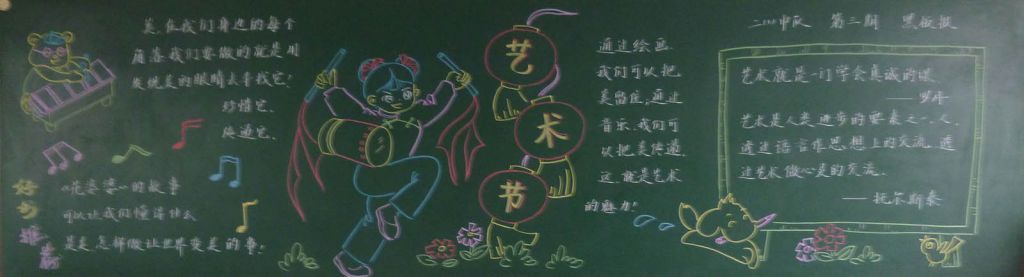 美,在我们身边的每个
角落,我们要做的就是用
发现美的眼睛去寻找它!
珍惜它.
传递它.
好
句
推
荐
《花婆婆》的故事
可以让我们懂得什么
是美,怎样做让世界变美的事!
艺
术
节
通过绘画.
我们可以把
美留住;通过
音乐.我们可
以把美传递.
这就是艺术
的魅力!
二(三)中队 第三期 黑板报
艺术就是一门学会真诚的课.
——罗丹
艺术是人类进步的要素之一.人
透过语言作思想上的交流,透
过艺术做心灵的交流.
——托尔斯泰